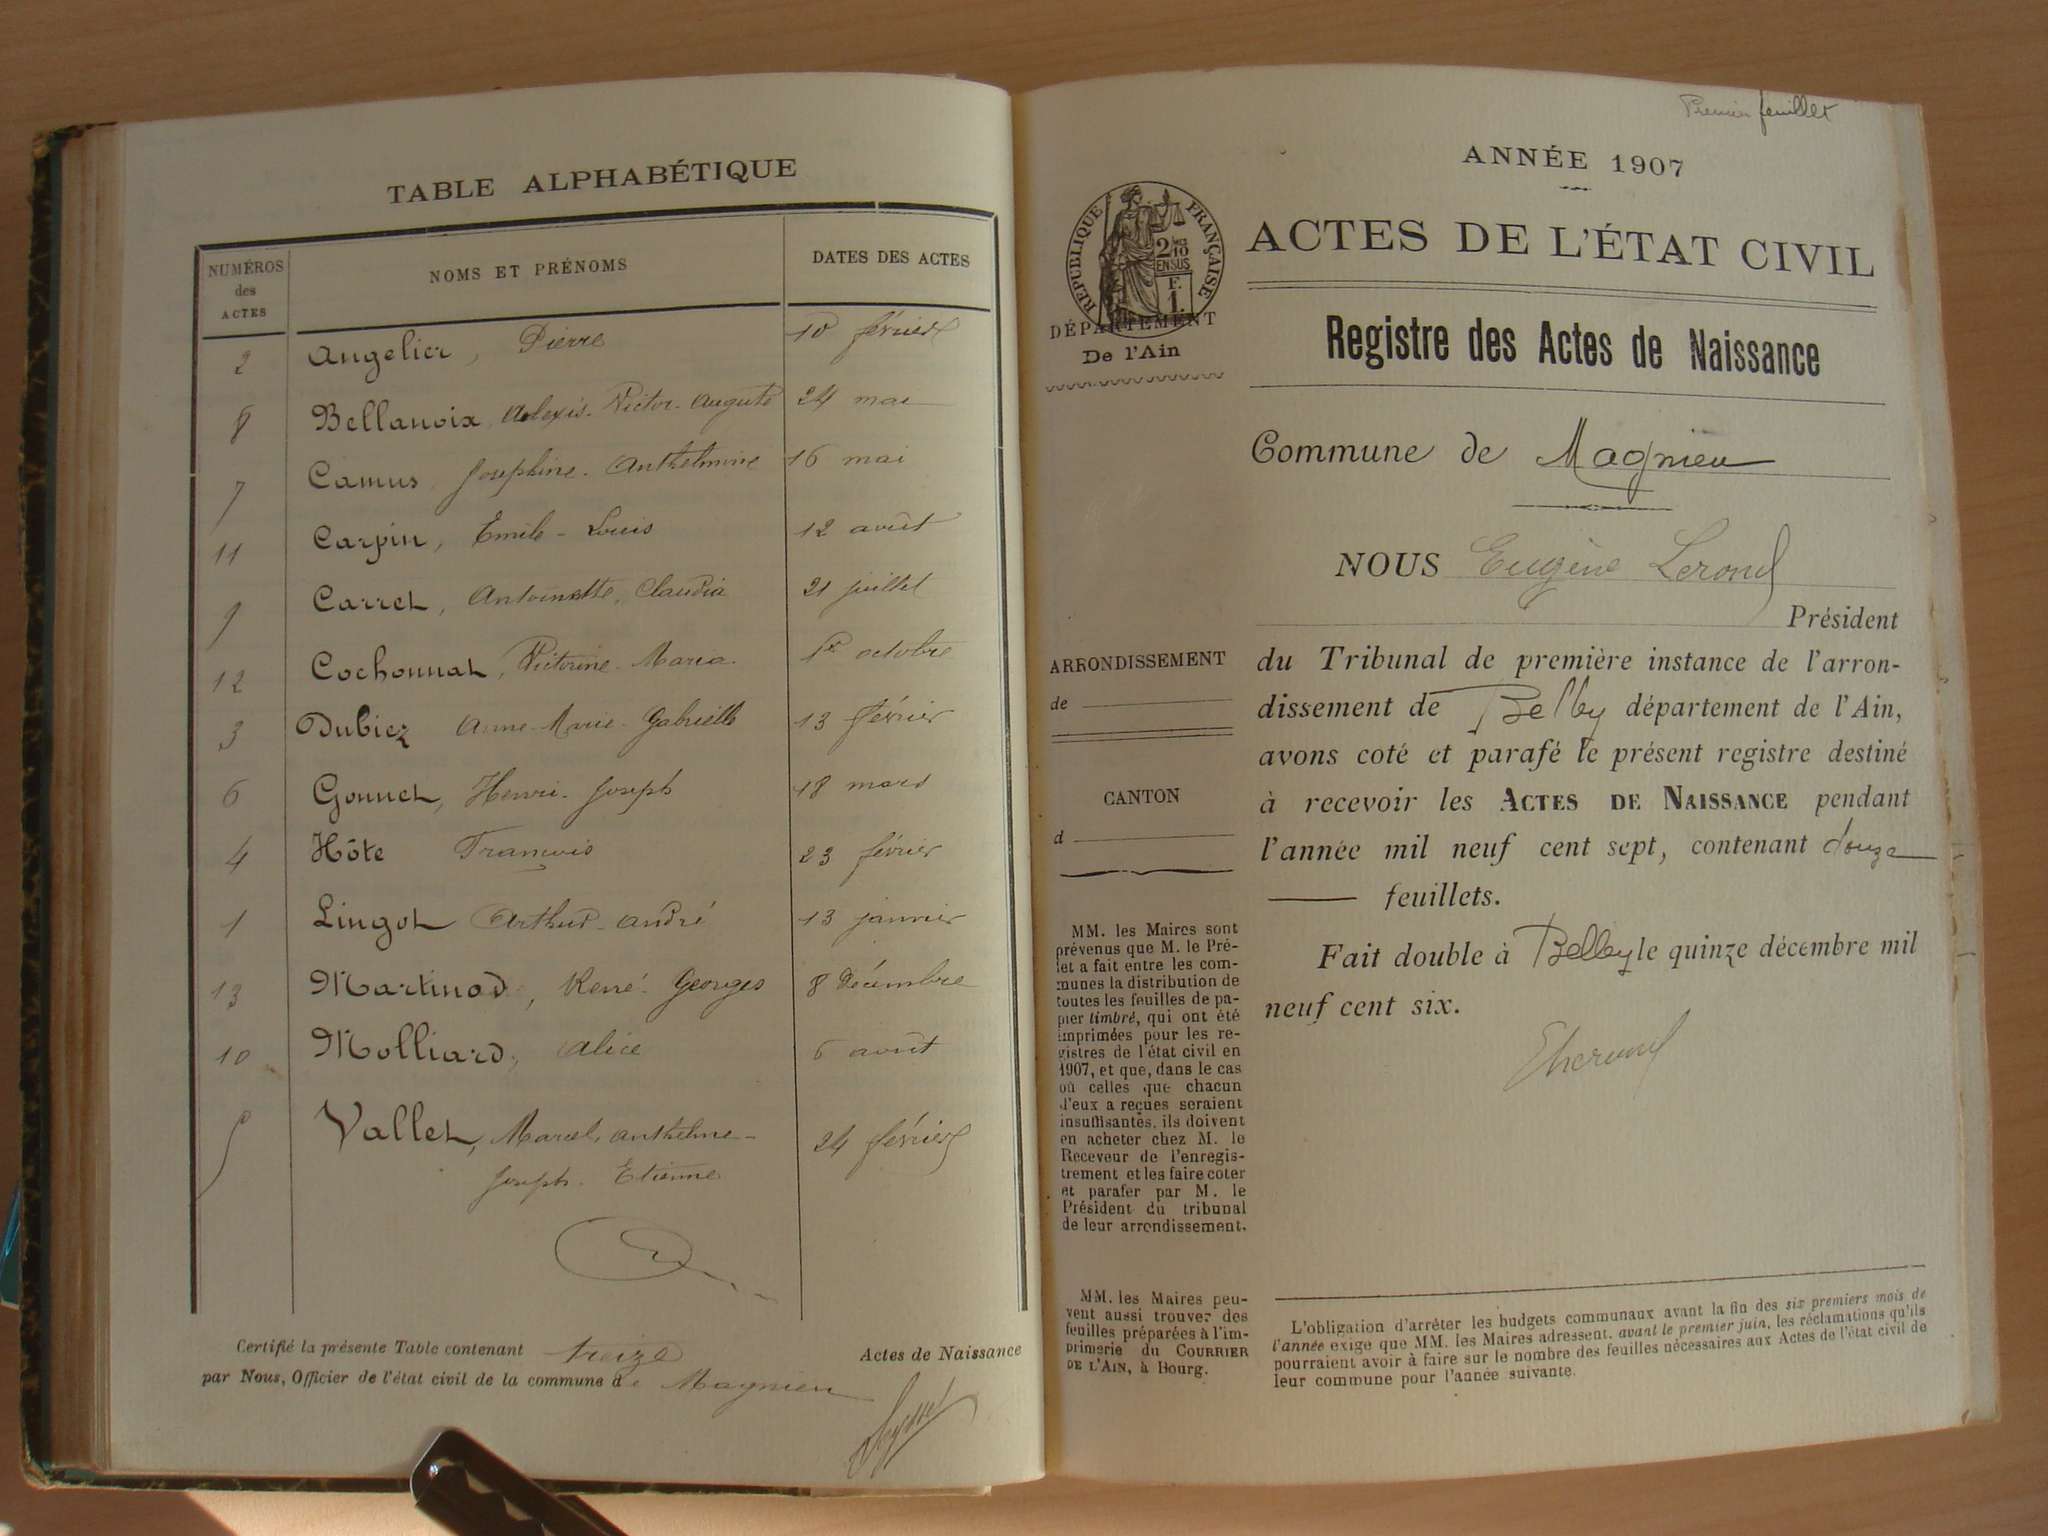 TABLE ALPHABÉTIQUE
NUMÉROS des ACTES NOMS ET PRÉNOMS DATES DES ACTES
2 Angelier, Pierre 10 février
8 Bellanoix, Alexis-Victor-Auguste 24 mai
7 Camus, Joséphine-Anthelmine 16 mai
11 Carpin, Emile-Louis 12 août
9 Carret, Antoinette, Claudia 21 juillet
12 Cochonnat, Victorine-Maria. 1er octobre
3 Dubiez Anne-Marie-Gabrielle 13 février
6 Gonnet, Henri-Joseph 18 mars
4 Hôte François 23 février
1 Lingot Arthur-André 13 janvier
13 Martinod, René-Georges 8 Décembre
10 Molliard, Alice 6 août
5 Vallet, Marcel, Anthelme-
Joseph-Etienne 24 février
Certifié la présente Table contenant treize Actes de Naissance
par Nous, Officier de l'état civil de la commune de Magnieu
Premier feuillet
ANNÉE 1907
RÉPUBLIQUE FRANÇAISE
2/10 EN SUS
F. 1
DÉPARTEMENT
De l'Ain
ACTES DE L'ÉTAT CIVIL
Registre des Actes de Naissance
Commune de Magnieu
NOUS Eugène Lerond
Président
du Tribunal de première instance de l'arron-
dissement de Belley département de l'Ain,
avons coté et parafé le présent registre destiné
à recevoir les ACTES DE NAISSANCE pendant
l'année mil neuf cent sept, contenant douze
feuillets.
Fait double à Belley le quinze décembre mil
neuf cent six.
ARRONDISSEMENT
de
CANTON
d
MM. les Maires sont
prévenus que M. le Pré-
fet a fait entre les com-
munes la distribution de
toutes les feuilles de pa-
pier timbré, qui ont été
imprimées pour les re-
gistres de l'état civil en
1907, et que, dans le cas
où celles que chacun
d'eux a reçues seraient
insuffisantes, ils doivent
en acheter chez M. le
Receveur de l'enregis-
trement et les faire coter
et parafer par M. le
Président du tribunal
de leur arrondissement.
MM. les Maires peu-
vent aussi trouver des
feuilles préparées à l'im-
primerie du COURRIER
DE L'AIN, à Bourg.
L'obligation d'arrêter les budgets communaux avant la fin des six premiers mois de
l'année exige que MM. les Maires adressent, avant le premier juin, les réclamations qu'ils
pourraient avoir à faire sur le nombre des feuilles nécessaires aux Actes de l'état civil de
leur commune pour l'année suivante.